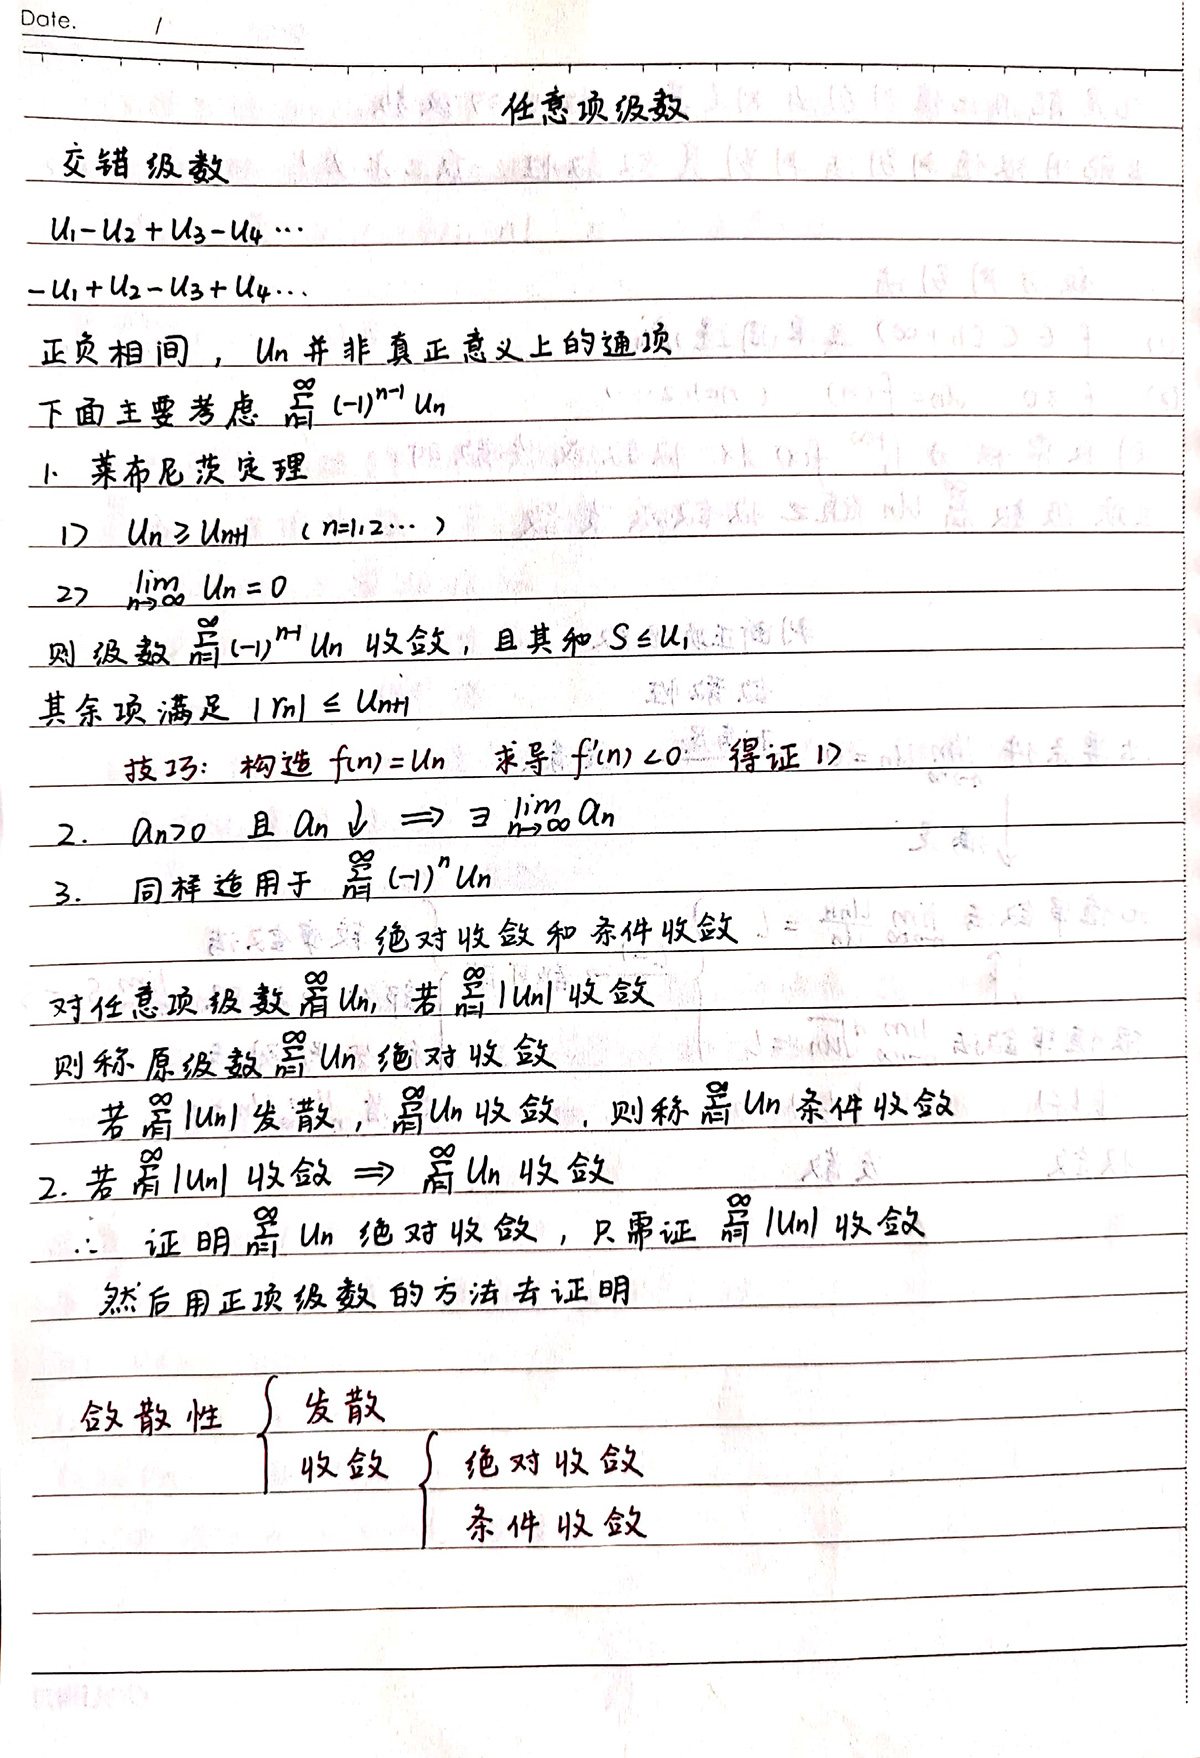 Date. /
任意项级数
交错级数
U₁-U₂+U₃-U₄…
-U₁+U₂-U₃+U₄…
正负相间，Un并非真正意义上的通项
下面主要考虑 ∑_{n=1}^{∞} (-1)^{n-1} Un
1. 莱布尼茨定理
1) Un≥Un+1 (n=1,2…)
2) lim_{n→∞} Un=0
则级数 ∑_{n=1}^{∞} (-1)^{n-1} Un 收敛，且其和 S≤U₁
其余项满足 |rn| ≤ Un+1
技巧：构造 f(n)=Un 求导 f'(n)<0 得证 1)
2. an>0 且 an↓ ⇒ ∃ lim_{n→∞} an
3. 同样适用于 ∑_{n=1}^{∞} (-1)^n Un
绝对收敛和条件收敛
对任意项级数 ∑_{n=1}^{∞} Un, 若 ∑_{n=1}^{∞} |Un| 收敛
则称原级数 ∑_{n=1}^{∞} Un 绝对收敛
若 ∑_{n=1}^{∞} |Un| 发散，∑_{n=1}^{∞} Un 收敛，则称 ∑_{n=1}^{∞} Un 条件收敛
2. 若 ∑_{n=1}^{∞} |Un| 收敛 ⇒ ∑_{n=1}^{∞} Un 收敛
∴ 证明 ∑_{n=1}^{∞} Un 绝对收敛，只需证 ∑_{n=1}^{∞} |Un| 收敛
然后用正项级数的方法去证明
敛散性 { 发散
收敛 { 绝对收敛
条件收敛